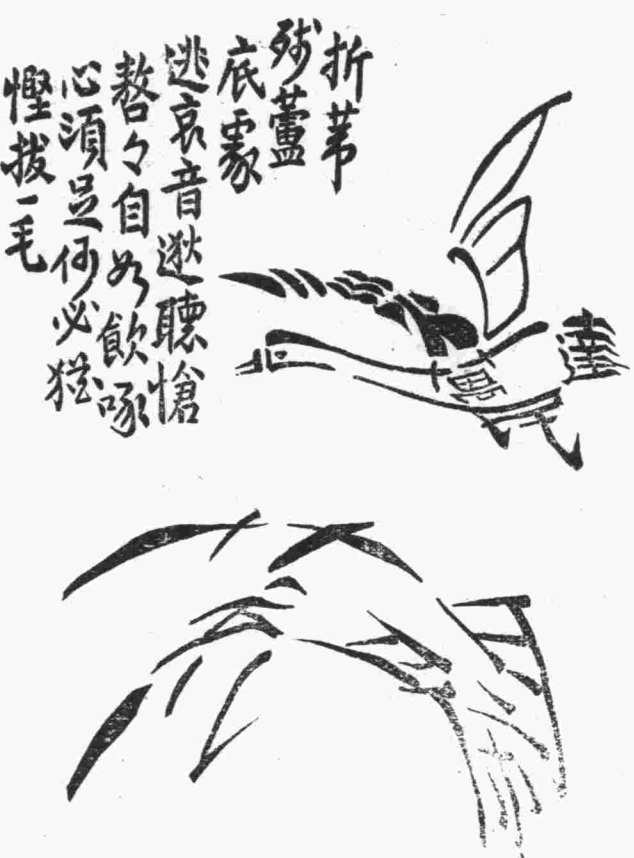 折葦
殘蘆
底處
逃哀音遨聽愴
嗸々自如飲啄
心須足何必猶
慳拔一毛